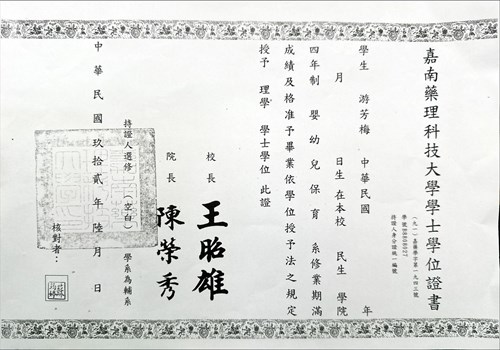 嘉南藥理科技大學學士學位證書
(九一)嘉藥學字第一九四三號
學號
持證人身分證統一編號
學生 游芳梅 中華民國 年
月 日生在本校 民生 學院
四年制 嬰幼兒保育 系修業期滿
成績及格准予畢業依學位授予法之規定
授予 理學 學士學位此證
校長 王昭雄
院長 陳榮秀
持證人選修 (空白) 學系為輔系
核對者:
中華民國玖拾貳年陸月 日